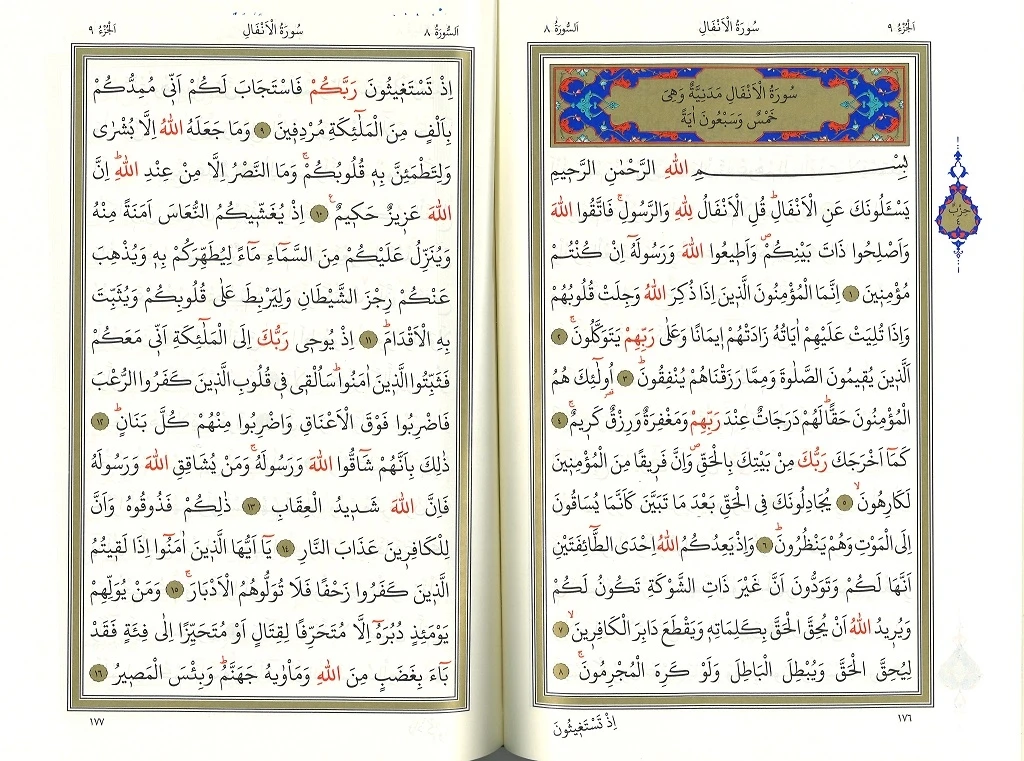 اَلْجُزْءُ ٩
سُورَةُ الْاَنْفَالِ
اَلسُّورَةُ ٨
سُورَةُ الْاَنْفَالِ مَدَنِيَّةٌ وَهِىَ
خَمْسٌ وَسَبْعُونَ اٰيَةً
بِسْمِ اللّٰهِ الرَّحْمٰنِ الرَّحٖيمِ
يَسْـَٔلُونَكَ عَنِ الْاَنْفَالِۜ قُلِ الْاَنْفَالُ لِلّٰهِ وَالرَّسُولِۚ فَاتَّقُوا اللّٰهَ
وَاَصْلِحُوا ذَاتَ بَيْنِكُمْۖ وَاَطٖيعُوا اللّٰهَ وَرَسُولَهُٓ اِنْ كُنْتُمْ
مُؤْمِنٖينَ ١ اِنَّمَا الْمُؤْمِنُونَ الَّذٖينَ اِذَا ذُكِرَ اللّٰهُ وَجِلَتْ قُلُوبُهُمْ
وَاِذَا تُلِيَتْ عَلَيْهِمْ اٰيَاتُهُ زَادَتْهُمْ اٖيمَانًا وَعَلٰى رَبِّهِمْ يَتَوَكَّلُونَۚ ٢
اَلَّذٖينَ يُقٖيمُونَ الصَّلٰوةَ وَمِمَّا رَزَقْنَاهُمْ يُنْفِقُونَۜ ٣ اُو۬لٰٓئِكَ هُمُ
الْمُؤْمِنُونَ حَقًّاۜ لَهُمْ دَرَجَاتٌ عِنْدَ رَبِّهِمْ وَمَغْفِرَةٌ وَرِزْقٌ كَرٖيمٌۚ ٤
كَمَٓا اَخْرَجَكَ رَبُّكَ مِنْ بَيْتِكَ بِالْحَقِّۖ وَاِنَّ فَرٖيقًا مِنَ الْمُؤْمِنٖينَ
لَكَارِهُونَۙ ٥ يُجَادِلُونَكَ فِى الْحَقِّ بَعْدَ مَا تَبَيَّنَ كَاَنَّمَا يُسَاقُونَ
اِلَى الْمَوْتِ وَهُمْ يَنْظُرُونَۜ ٦ وَاِذْ يَعِدُكُمُ اللّٰهُ اِحْدَى الطَّٓائِفَتَيْنِ
اَنَّهَا لَكُمْ وَتَوَدُّونَ اَنَّ غَيْرَ ذَاتِ الشَّوْكَةِ تَكُونُ لَكُمْ
وَيُرٖيدُ اللّٰهُ اَنْ يُحِقَّ الْحَقَّ بِكَلِمَاتِهٖ وَيَقْطَعَ دَابِرَ الْكَافِرٖينَۙ ٧
لِيُحِقَّ الْحَقَّ وَيُبْطِلَ الْبَاطِلَ وَلَوْ كَرِهَ الْمُجْرِمُونَۚ ٨
اِذْ تَسْتَغٖيثُونَ
١٧٦
حِزْبٌ
٤
اَلْجُزْءُ ٩
سُورَةُ الْاَنْفَالِ
اَلسُّورَةُ ٨
اِذْ تَسْتَغٖيثُونَ رَبَّكُمْ فَاسْتَجَابَ لَكُمْ اَنّٖى مُمِدُّكُمْ
بِاَلْفٍ مِنَ الْمَلٰٓئِكَةِ مُرْدِفٖينَ ٩ وَمَا جَعَلَهُ اللّٰهُ اِلَّا بُشْرٰى
وَلِتَطْمَئِنَّ بِهٖ قُلُوبُكُمْۚ وَمَا النَّصْرُ اِلَّا مِنْ عِنْدِ اللّٰهِۜ اِنَّ
اللّٰهَ عَزٖيزٌ حَكٖيمٌࣖ ١٠ اِذْ يُغَشّٖيكُمُ النُّعَاسَ اَمَنَةً مِنْهُ
وَيُنَزِّلُ عَلَيْكُمْ مِنَ السَّمَٓاءِ مَٓاءً لِيُطَهِّرَكُمْ بِهٖ وَيُذْهِبَ
عَنْكُمْ رِجْزَ الشَّيْطَانِ وَلِيَرْبِطَ عَلٰى قُلُوبِكُمْ وَيُثَبِّتَ
بِهِ الْاَقْدَامَۜ ١١ اِذْ يُوحٖى رَبُّكَ اِلَى الْمَلٰٓئِكَةِ اَنّٖى مَعَكُمْ
فَثَبِّتُوا الَّذٖينَ اٰمَنُواۜ سَاُلْقٖى فٖى قُلُوبِ الَّذٖينَ كَفَرُوا الرُّعْبَ
فَاضْرِبُوا فَوْقَ الْاَعْنَاقِ وَاضْرِبُوا مِنْهُمْ كُلَّ بَنَانٍۜ ١٢
ذٰلِكَ بِاَنَّهُمْ شَٓاقُّوا اللّٰهَ وَرَسُولَهُۚ وَمَنْ يُشَاقِقِ اللّٰهَ وَرَسُولَهُ
فَاِنَّ اللّٰهَ شَدٖيدُ الْعِقَابِ ١٣ ذٰلِكُمْ فَذُوقُوهُ وَاَنَّ
لِلْكَافِرٖينَ عَذَابَ النَّارِ ١٤ يَٓا اَيُّهَا الَّذٖينَ اٰمَنُٓوا اِذَا لَقٖيتُمُ
الَّذٖينَ كَفَرُوا زَحْفًا فَلَا تُوَلُّوهُمُ الْاَدْبَارَۚ ١٥ وَمَنْ يُوَلِّهِمْ
يَوْمَئِذٍ دُبُرَهُٓ اِلَّا مُتَحَرِّفًا لِقِتَالٍ اَوْ مُتَحَيِّزًا اِلٰى فِئَةٍ فَقَدْ
بَٓاءَ بِغَضَبٍ مِنَ اللّٰهِ وَمَأْوٰيهُ جَهَنَّمُۜ وَبِئْسَ الْمَصٖيرُ ١٦
١٧٧